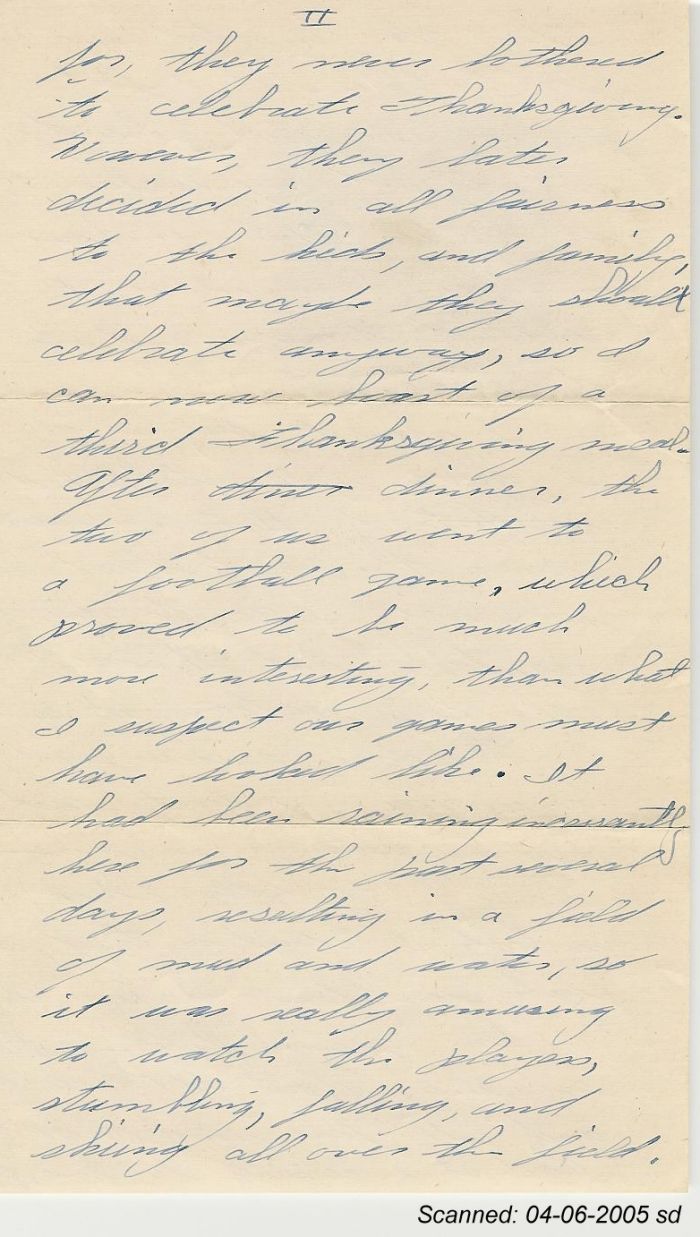 II
for, they never bothered
to celebrate Thanksgiving.
However, they later
decided in all fairness
to the kids, and family,
that maybe they should
celebrate anyway, so I
can now boast of a
third Thanksgiving meal.
After diner dinner, the
two of us went to
a football game, which
proved to be much
more interesting, than what
I suspect our games must
have looked like. It
had been raining incessantly
here for the past several
days, resulting in a field
of mud and water, so
it was really amusing
to watch the players,
stumbling, falling, and
skiing all over the field.
Scanned: 04-06-2005 sd